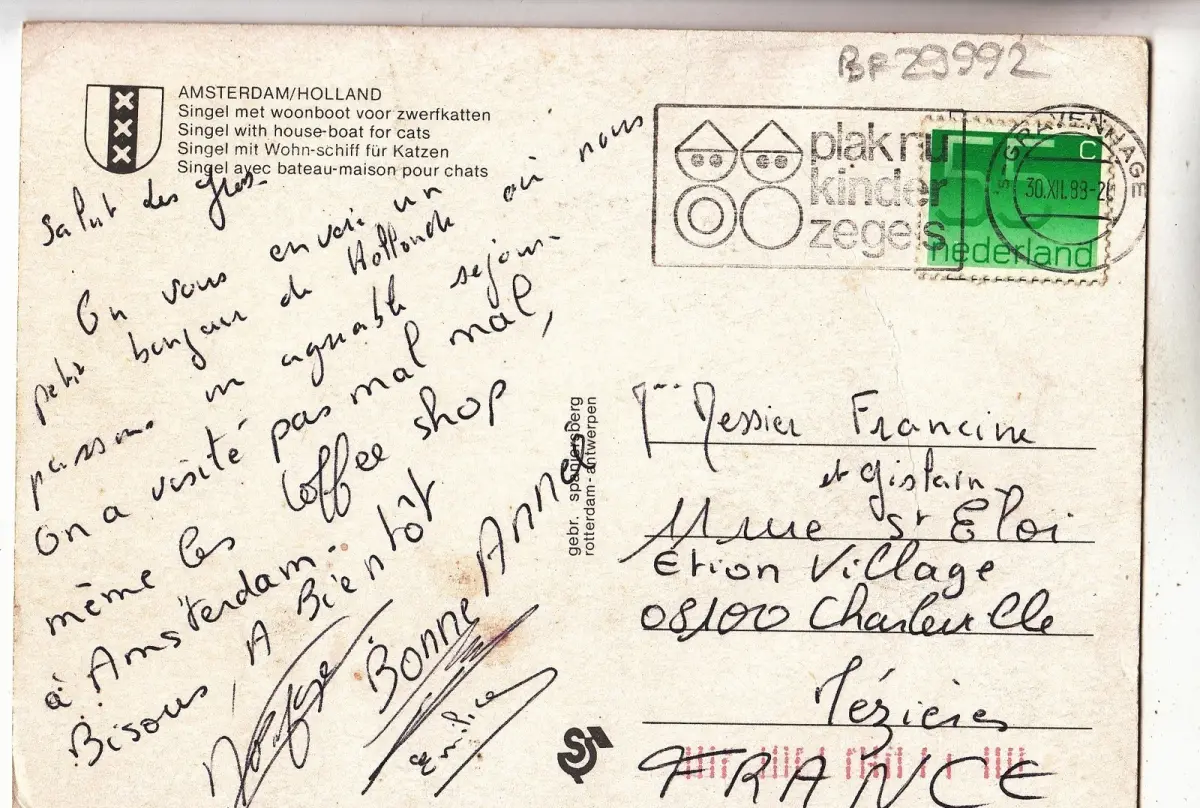 BFZ9992
AMSTERDAM/HOLLAND
Singel met woonboot voor zwerfkatten
Singel with house-boat for cats
Singel mit Wohn-schiff für Katzen
Singel avec bateau-maison pour chats
plak nu
kinder
zegels
55 c
nederland
'S-GRAVENHAGE
30.XII.88-2
Salut les
On vous envoi un
petit bonjour de Hollande où nous
passons un agréable séjour.
On a visité pas mal mal,
même les Coffee shop
à Amsterdam.
Bisous A Bientôt
BONNE ANNEE
gebr. spanjersberg
rotterdam - antwerpen
Messier Francine
et Gislain
11 rue st Eloi
Etion Village
08100 Charleville
Mézières
FRANCE